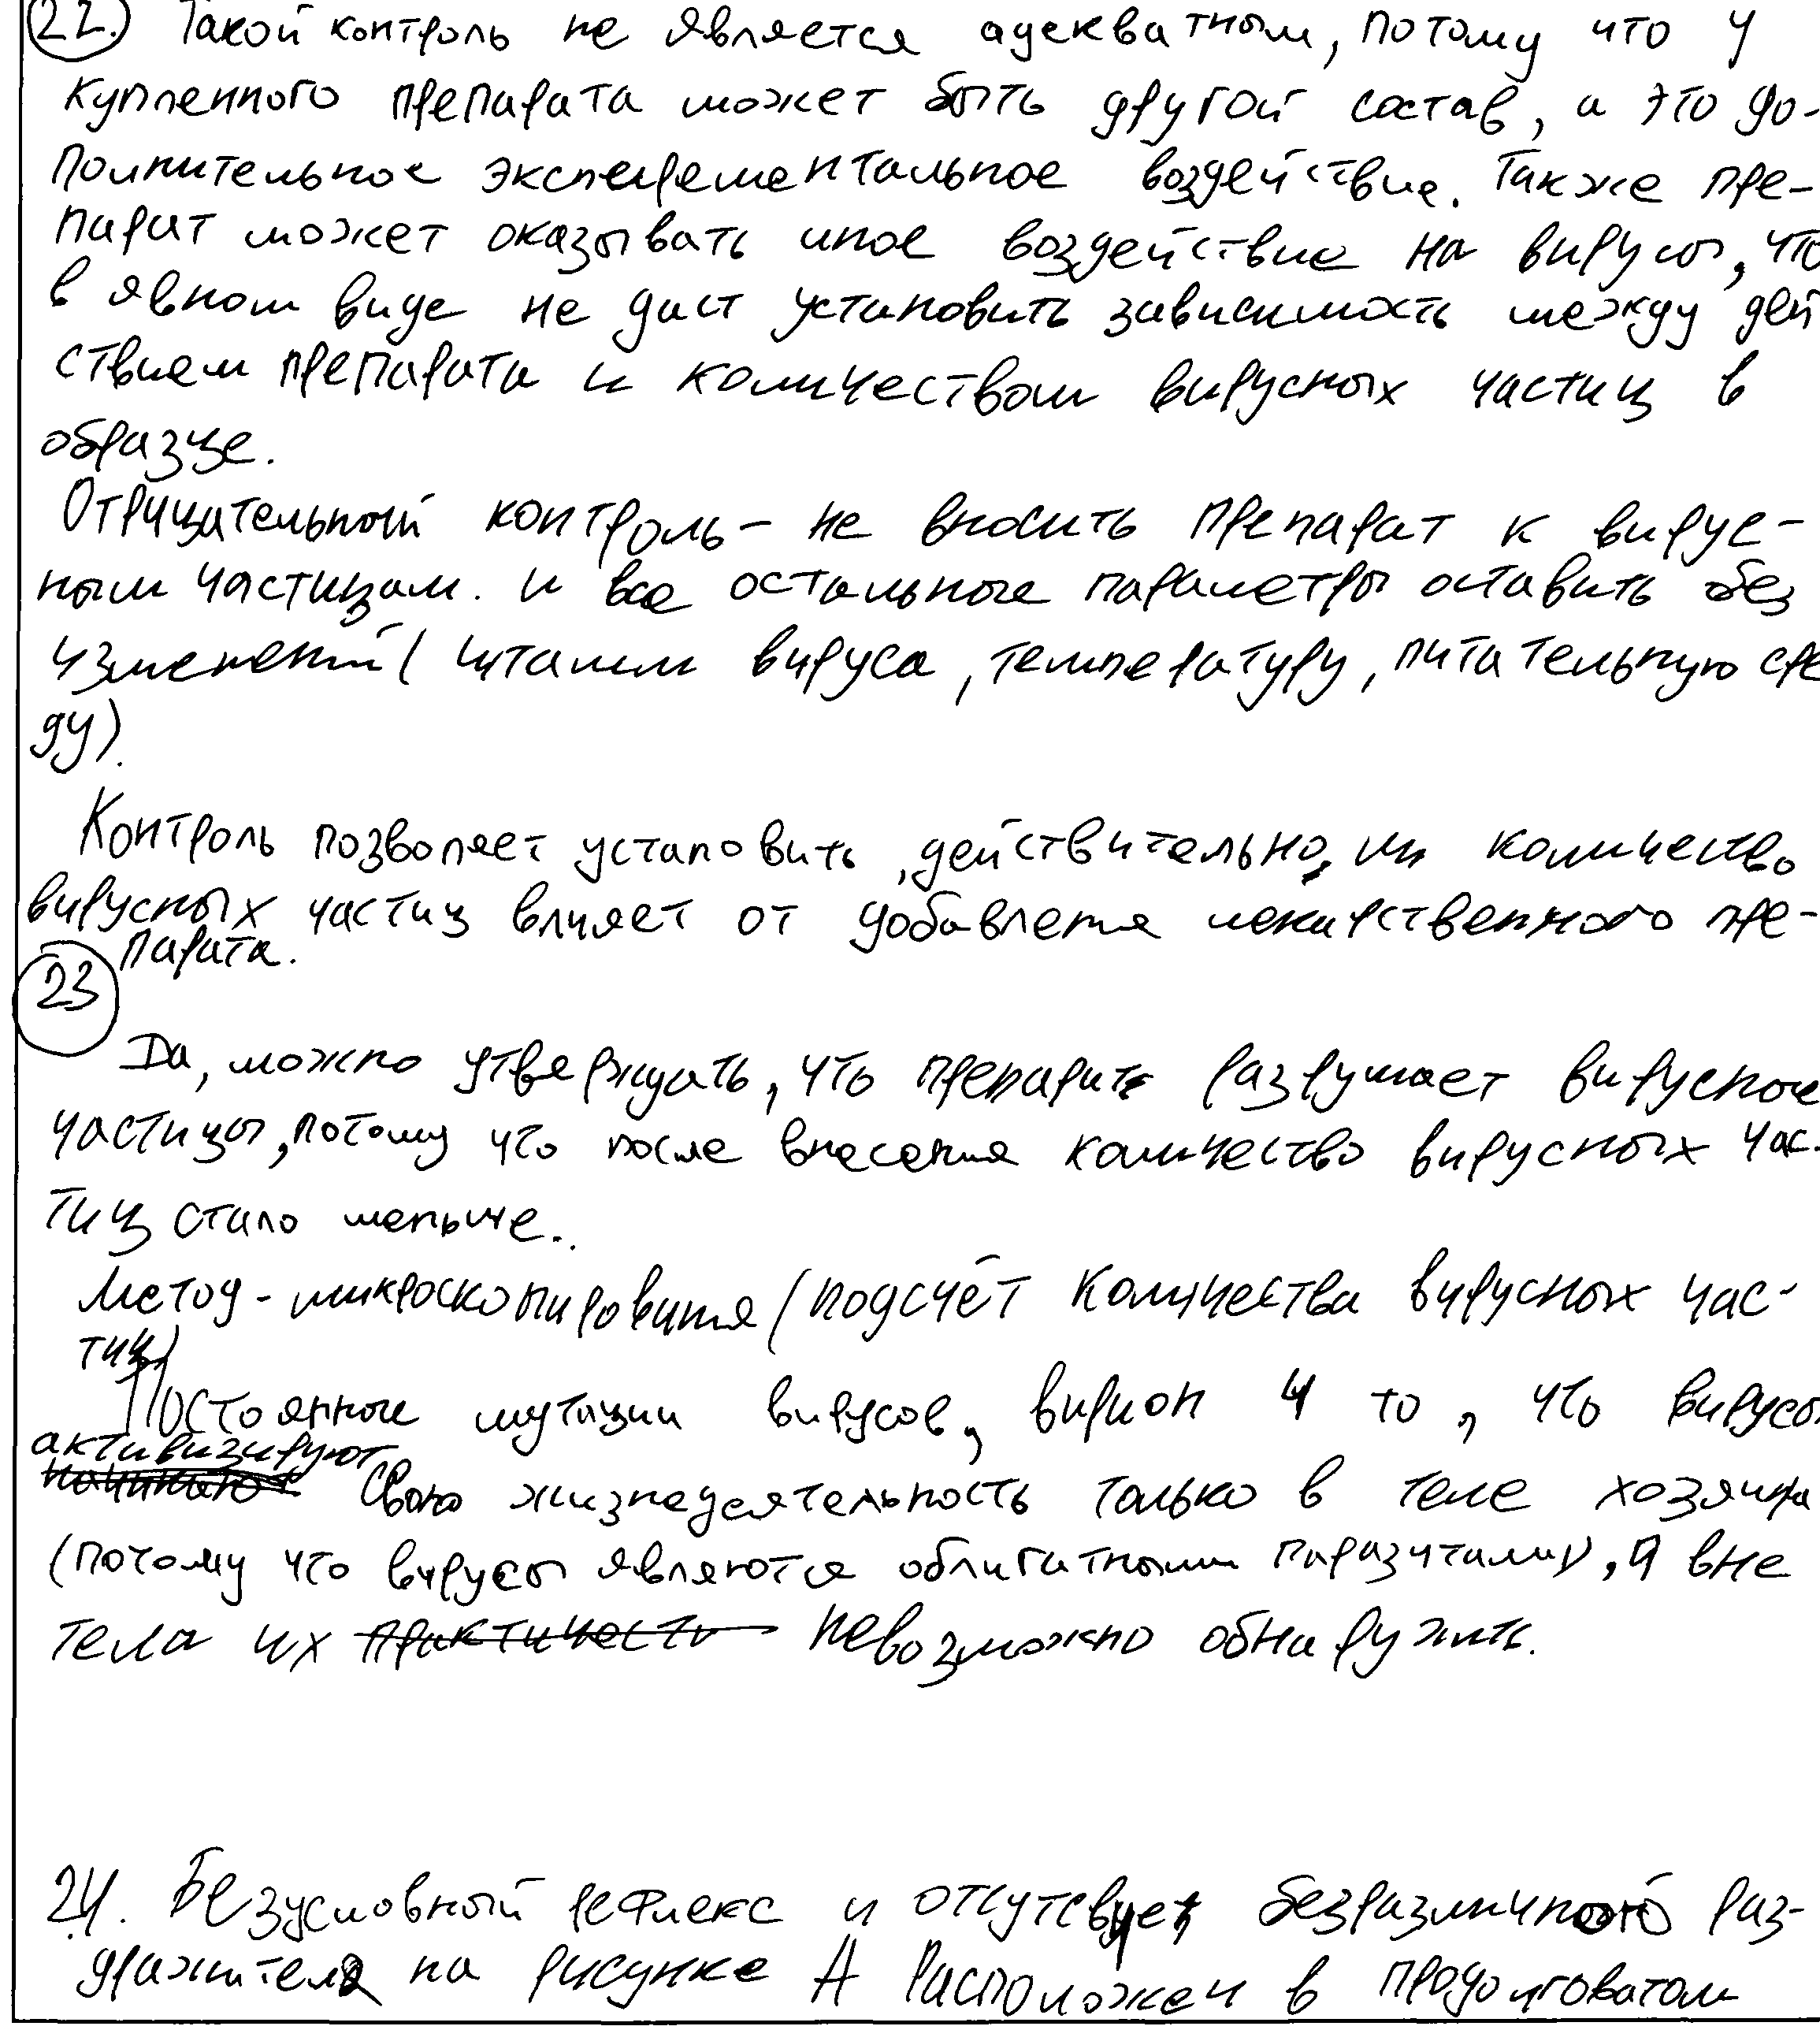 22. Такой контроль не является адекватным, потому что у
купленного препарата может быть другой состав, а это до-
полнительное эксперементальное воздействие. Также пре-
парат может оказывать иное воздействие на вирусы, что
в явном виде не даст установить зависимость между дей
ствием препарата и количеством вирусных частиц в
образце.
Отрицательный контроль - не вносить препарат к вирус-
ным частицам. и все остальные параметры оставить без
изменений (штамм вируса, температуру, питательную сре
ду).
Контроль позволяет установить, действительно, ли количество
вирусных частиц влияет от добавления лекарственного пре-
парата.
23
Да, можно утверждать, что препарат разрушает вирусные
частицы, потому что после внесения количество вирусных час-
тиц стало меньше.
Метод - микроскопирования (подсчёт количества вирусных час-
тиц)
Постоянные мутации вирусов, вирион и то, что вирусы
активизируют
свою жизнедеятельность только в теле хозяина
(потому что вирусы являются облигатными паразитами), а вне
тела их практичести невозможно обнаружить.
24. Безусловный рефлекс и отсутсвует безразличного раз-
дражителя на рисунке А Расположен в продолговатом